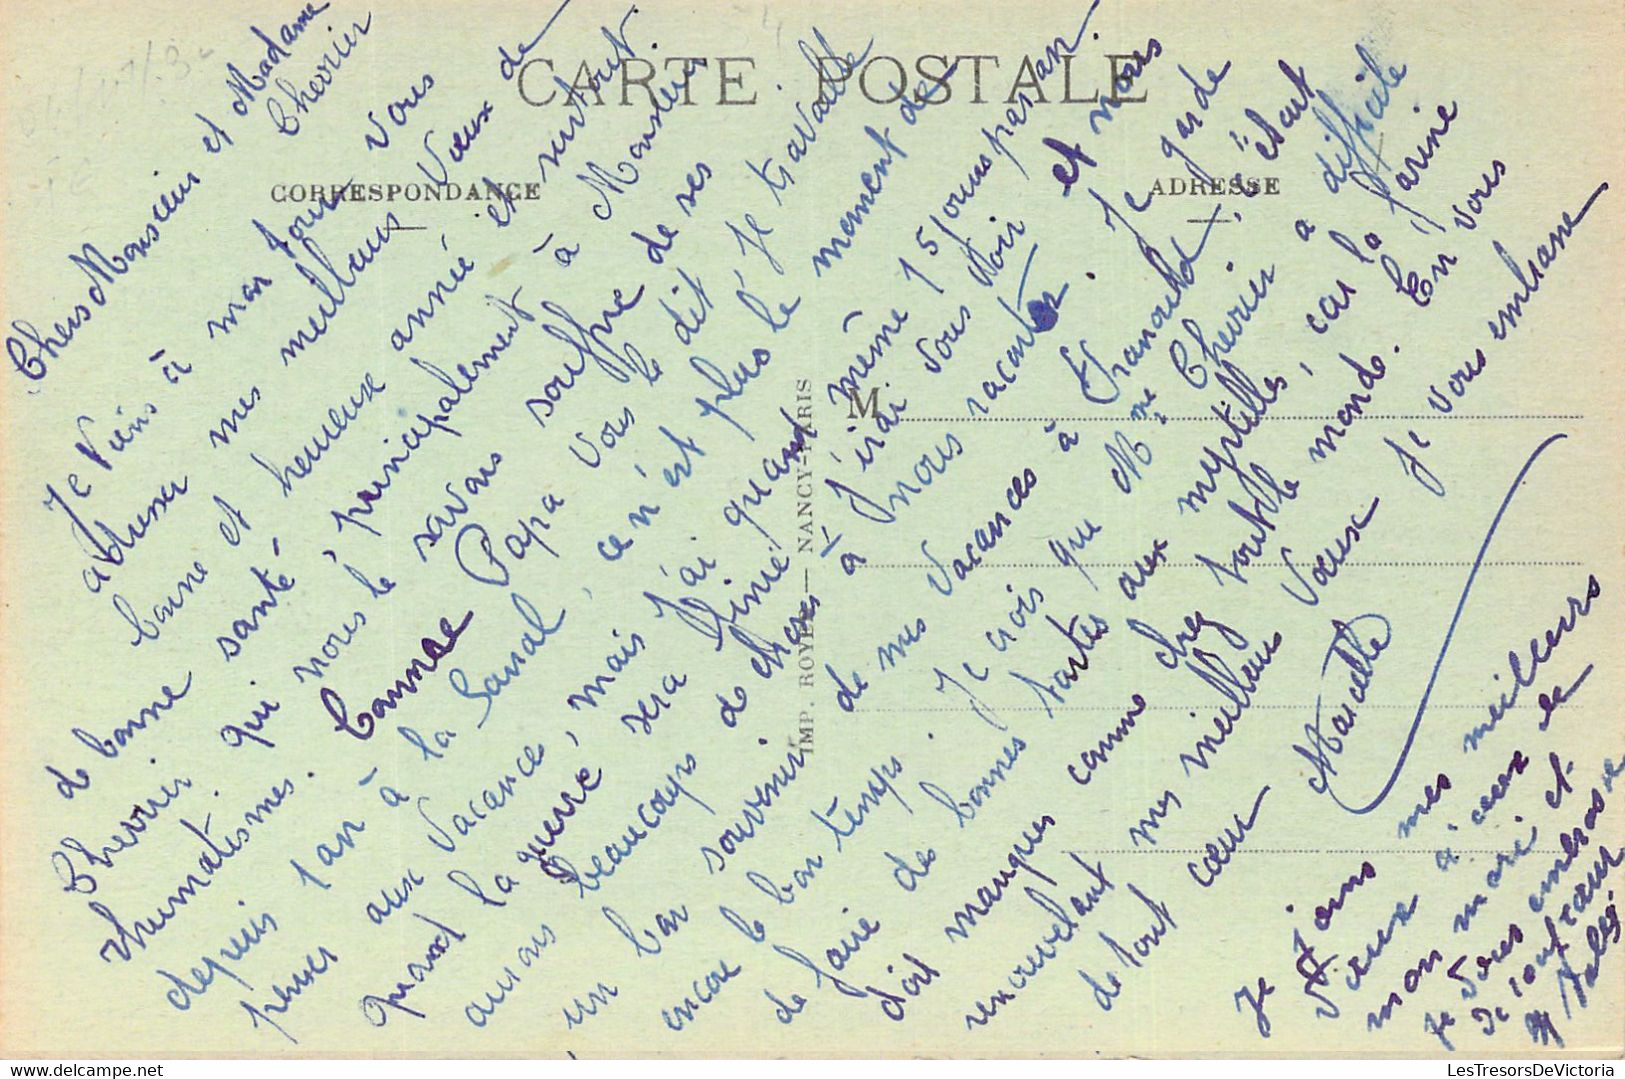 CARTE POSTALE
CORRESPONDANCE
ADRESSE
M
IMP. ROYER — NANCY-PARIS
Chers Monsieur et Madame
Chevrier
Je viens à mon tour vous
adresser mes meilleurs Vœux de
bonne et heureuse année et surtout
de bonne santé, principalement à Monsieur
Chevrier qui nous le savons souffre de ses
rhumatismes. Comme Papa vous le dit, Je travaille
depuis 1 an à la Sanal, ce n'est plus le moment de
penser aux Vacances, mais j'ai quand même 15 jours par an.
quand la guerre sera finie J'irai vous voir et nous
aurons beaucoups de choses à nous raconter. Je garde
un bon souvenir de mes Vacances à, c'était
encore le bon temps. Je crois que Mme Chevrier a difficile
de faire de bonnes tartes aux myrtilles, car la farine
doit manquer comme chez tout le monde. En vous
renouvelant mes meilleurs Voeux Je vous embrasse
de tout cœur
Marcelle
Je joins mes meilleurs
vœux à ceux de
mon mari et
je vous embrasse
de tout cœur